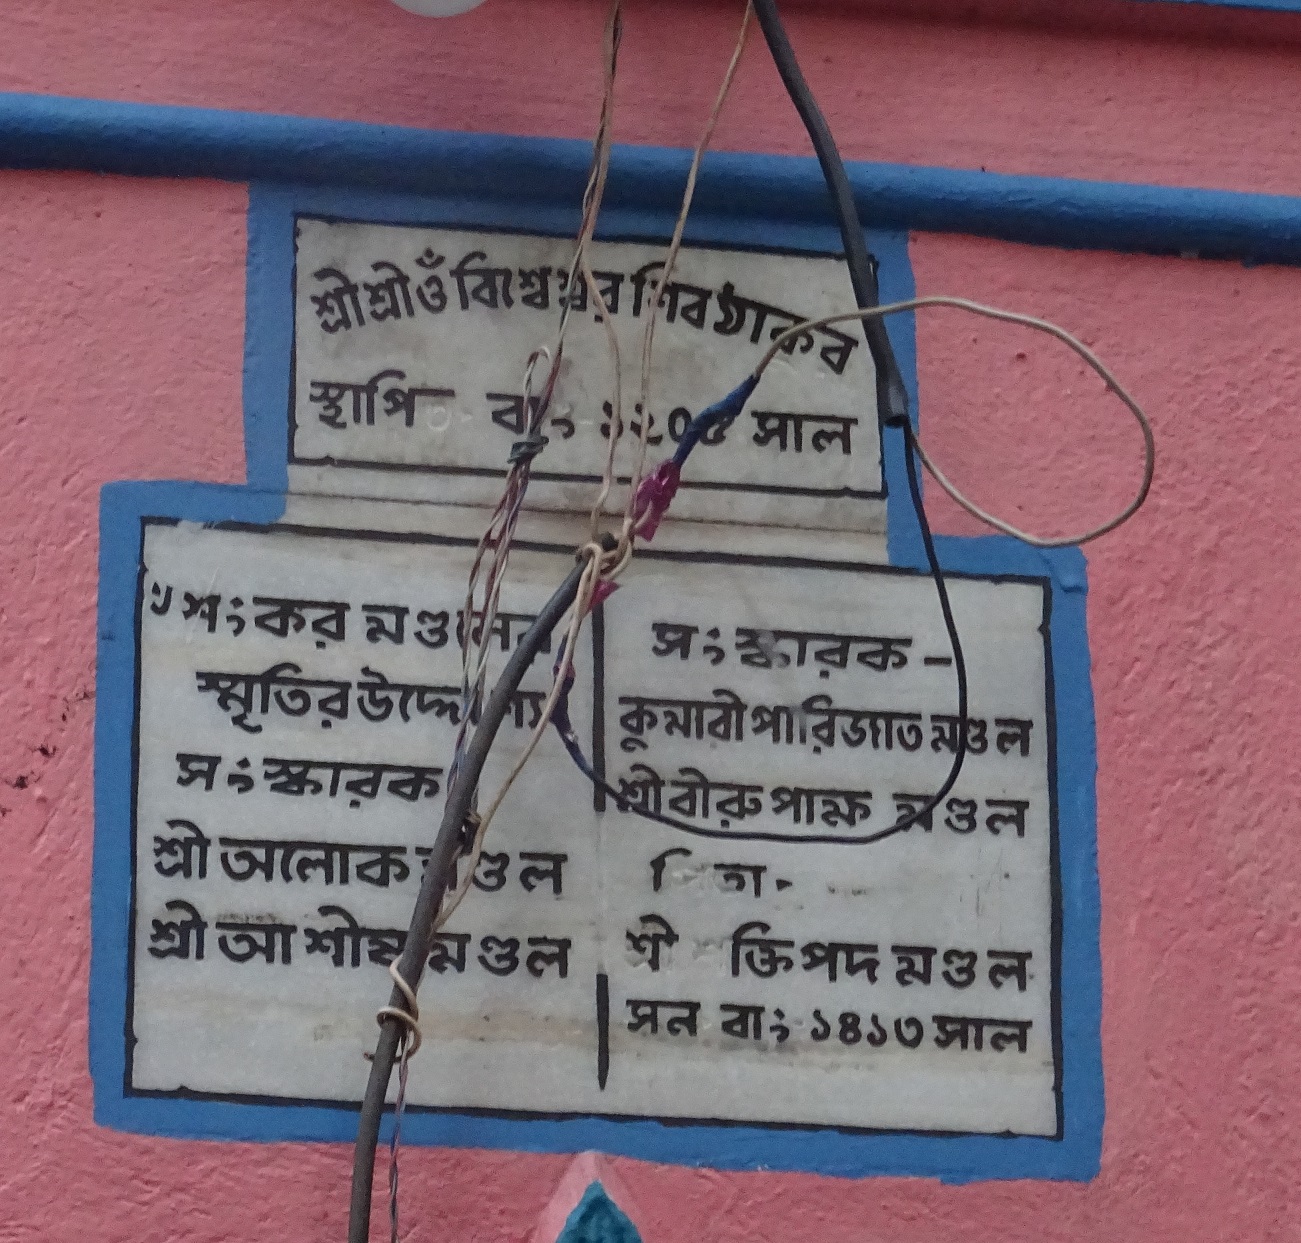 শ্রীশ্রীওঁ বিশ্বেশ্বর শিব ঠাকুর
স্থাপি বাং ১২০৫ সাল
৺শংকর মণ্ডলের
স্মৃতির উদ্দেশ্যে
সংস্কারক
শ্রী অলোক মণ্ডল
শ্রী আশীষ মণ্ডল
সংস্কারক -
কুমারী পারিজাত মণ্ডল
শ্রী বীরুপাক্ষ মণ্ডল
শ্রী ক্তিপদ মণ্ডল
সন বাং ১৪১৩ সাল